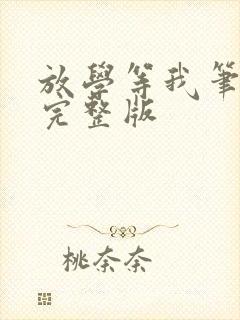 放學等我筆
完整版
桃奈奈